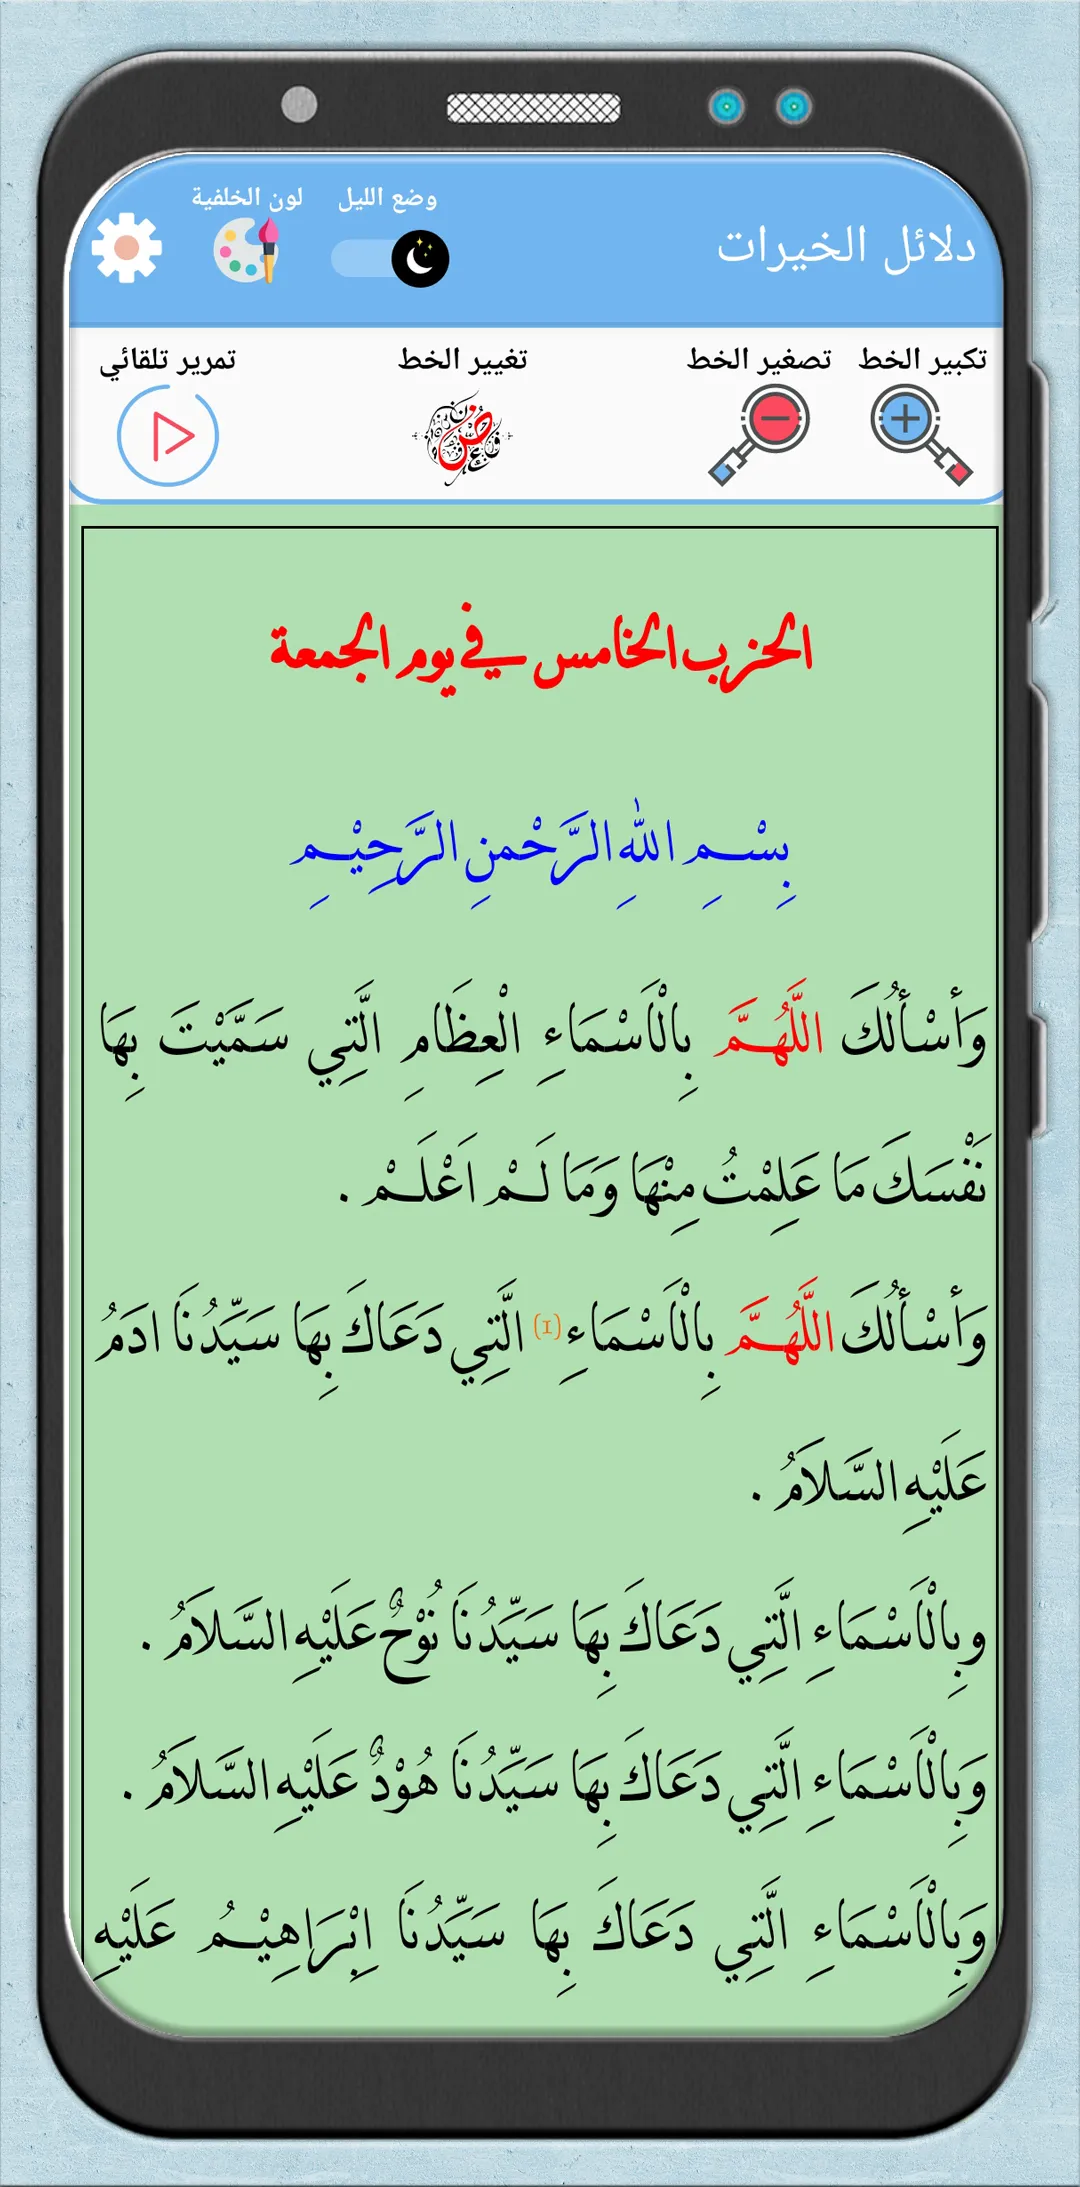 دلائل الخيرات
وضع الليل
لون الخلفية
تكبير الخط
تصغير الخط
تغيير الخط
تمرير تلقائي
الحزب الخامس في يوم الجمعة
بِسْمِ اللهِ الرَّحْمنِ الرَّحِيْمِ
وَأَسْأَلُكَ اللَّهُمَّ بِالْاَسْمَاءِ الْعِظَامِ الَّتِي سَمَّيْتَ بِهَا
نَفْسَكَ مَا عَلِمْتُ مِنْهَا وَمَا لَمْ اَعْلَمْ .
وَأَسْأَلُكَ اللَّهُمَّ بِالْاَسْمَاءِ (1) الَّتِي دَعَاكَ بِهَا سَيِّدُنَا ادَمُ
عَلَيْهِ السَّلاَمُ .
وبِالْاَسْمَاءِ الَّتِي دَعَاكَ بِهَا سَيِّدُنَا نُوْحٌ عَلَيْهِ السَّلاَمُ .
وَبِالْاَسْمَاءِ الَّتِي دَعَاكَ بِهَا سَيِّدُنَا هُوْدٌ عَلَيْهِ السَّلاَمُ .
وَبِالْاَسْمَاءِ الَّتِي دَعَاكَ بِهَا سَيِّدُنَا اِبْرَاهِيْمُ عَلَيْهِ